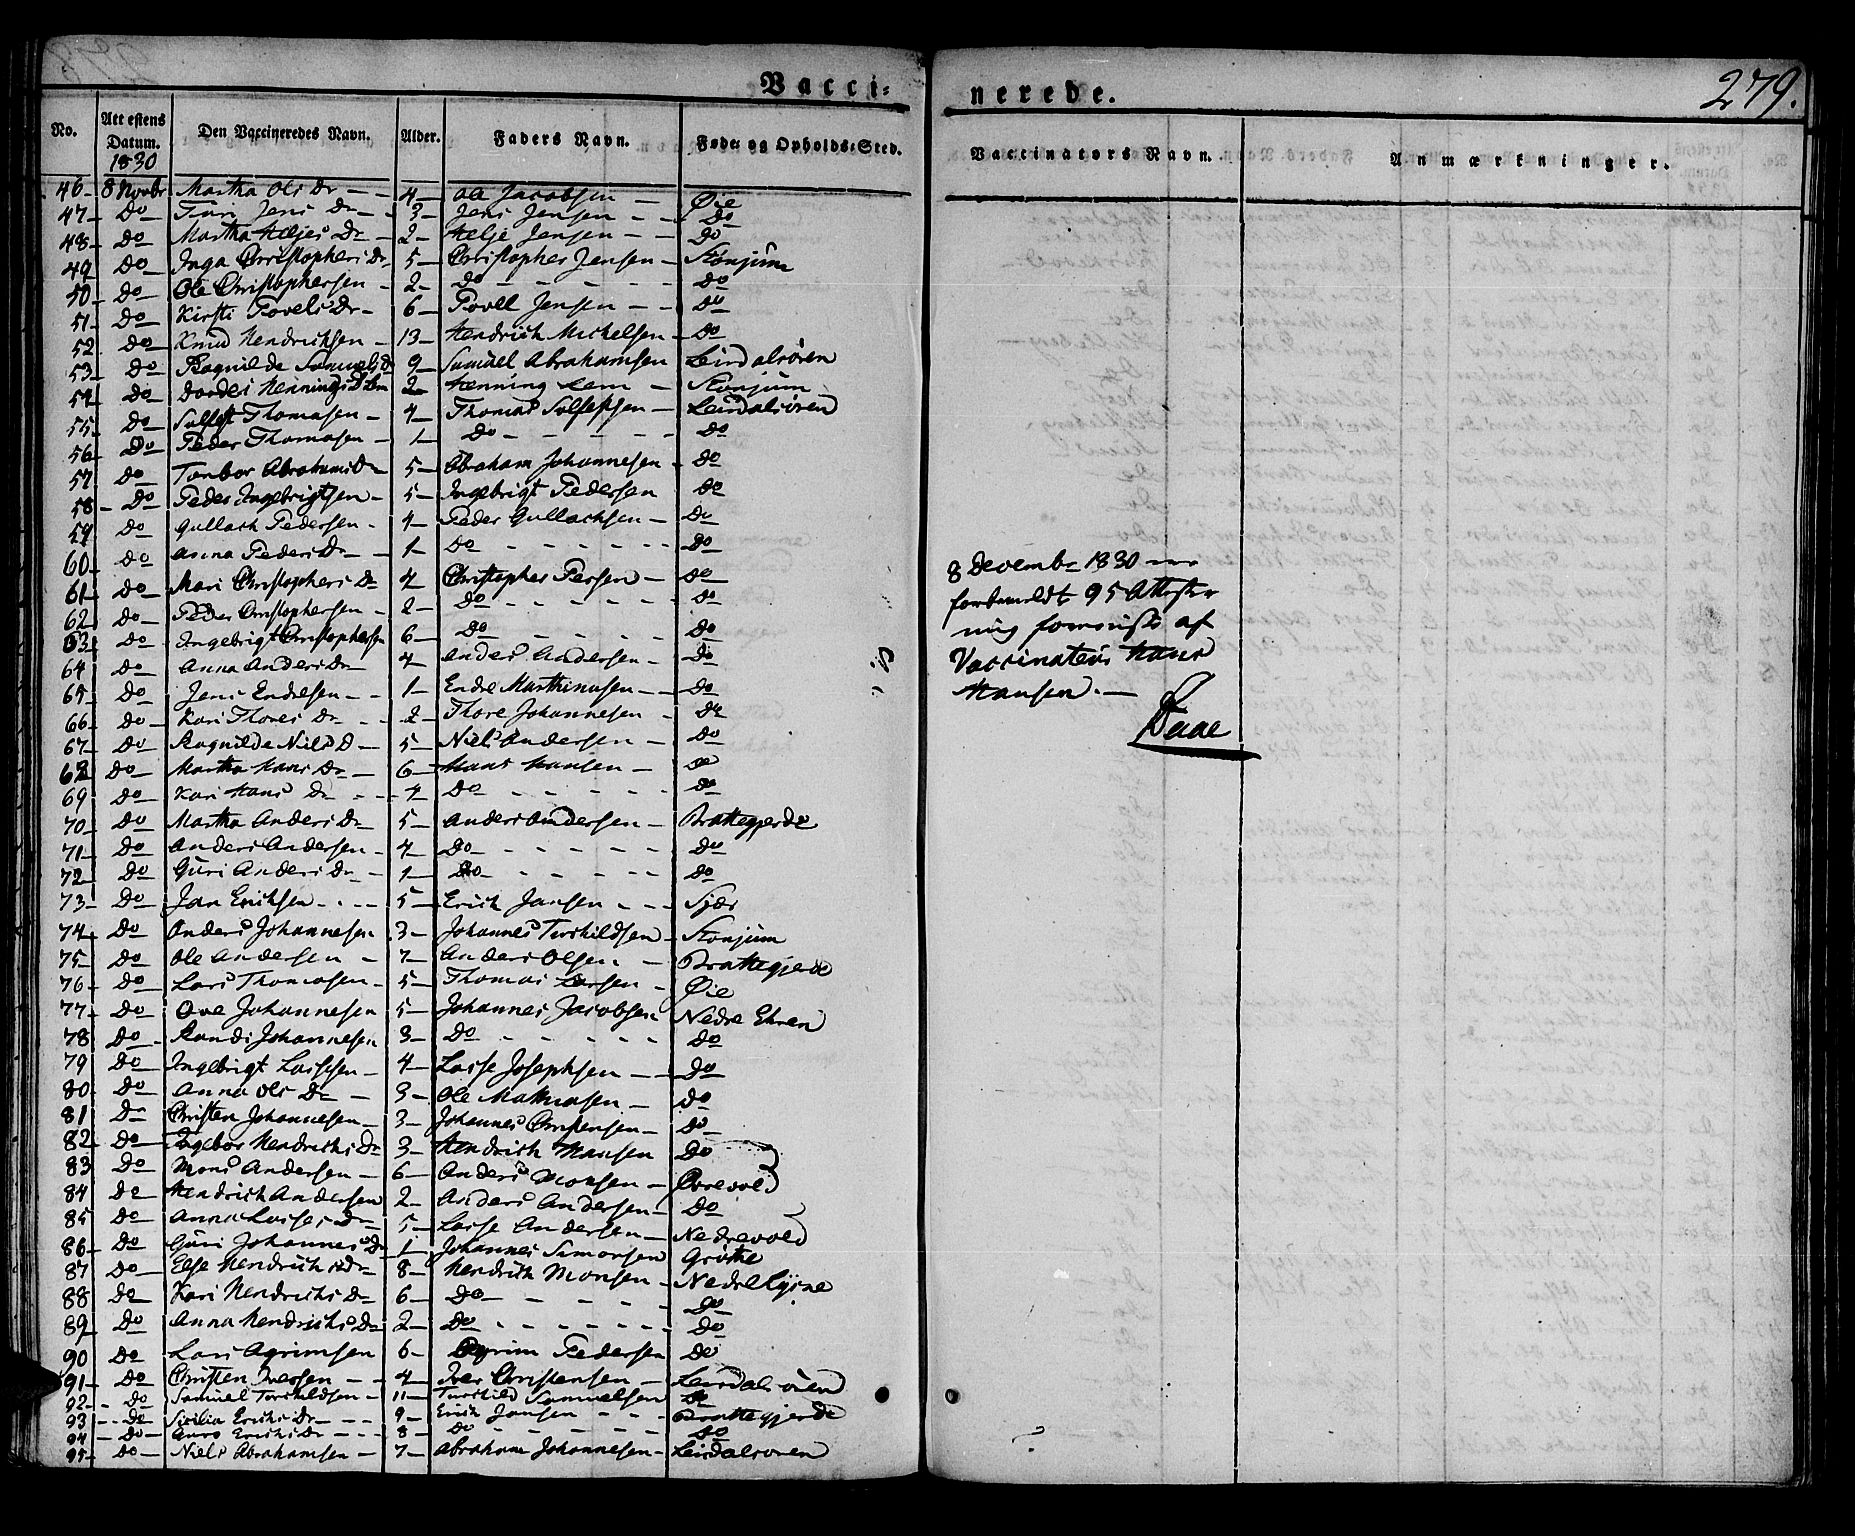 279.
Vacci- nerede.
No. Att estens Datum. Den Vaccineredes Navn. Alder. Faders Navn. Føde- og Opholds-Sted. Vaccinatørs Navn. Anmærkninger.
1830
46 - 8 Novbr Martha Ols Dr - 4 - Ole Jacobsen - Øie
47 - Do Turi Jens Dr - 3 - Jens Jensen - Do
48 - Do Martha Heljes Dr - 2 - Helje Jensen - Do
49 Do Inga Christophers Dr 5 - Christopher Jensen - Stonjum
50 - Do Ole Christophersen - 2 - Do - Do
51 - Do Kirsti Povels Dr - 6 - Povell Jensen - Do
52 Do Knud Hendrichsen - 13 - Hendrich Michelsen - Do
53 - Do Ragnilde Samuels Dr 9 - Samuel Abrahamsen Leirdalsören
54 - Do Hennings D Lem 2 - Henning Lem - Stonjum
55 Do Thomasen - 4 - Thomas - Leirdalsören
56 - Do Peder Thomasen - 1 - Do - Do
57 Do Torbor Abrahams Dr 5 - Abraham Johannesen - Do
58 - Do Peder Ingebrigtsen - 5 - Ingebrigt Pedersen Do
59 Do Gullach Pedersen - 4 - Peder Gullachsen - Do
60 - Do Anna Peders Dr - 1 - Do - Do
61 - Do Mari Christophers Dr 4 Christopher Persen - Do
62 Do - Peder Christophersen - 2 - Do - Do
63 - Do Ingebrigt Christophersen 6 - Do - Do
64 Do Anna Anders Dr 4 - Anders Andersen - Do
65 - Do Jens Endresen - 1 - Endre Marthinusen - Do
66 - Do - Kari Thores Dr - 2 - Thore Johannesen - Do
67 - Do Ragnilde Niels D - 5 - Niels Andersen - Do
68 Do - Martha Hans Dr - 6 - Hans Hansen - Do
69 Do - Kari Hans Dr - 4 - Do - Do
70 - Do Martha Anders Dr 5 - Anders Andersen - Brattegjerde
71 - Do Anders Andersen - 4 - Do - Do
72 - Do Guri Anders Dr - 1 - Do - Do
73 - Do Jan Erichsen - 5 - Erich Jansen - Tjær
74 - Do Anders Johannesen 3 - Johannes Torchildsen - Stonjum
75 - Do Ole Andersen - 7 - Anders Olsen - Brattegjerde
76 - Do - Lars Thomasen - 5 - Thomas Larsen - Øie
77 - Do Ove Johannesen 5 - Johannes Jacobsen Nedre Ehren
78 Do - Randi Johannesen 3 - Do - Do
79 Do - Ingebrigt Lassesen - 4 - Lasse Josephsen - Do
80 - Do Anna Ols Dr - 3 - Ole Mathiasen - Do
81 Do Christen Johannesen - 3 - Johannes Christensen - Do
82 - Do - Ingebor Hendrichs Dr 3 - Hendrich Hansen Do
83 Do Mons Andersen - 6 - Anders Monsen - Øvrevold
84 Do Hendrich Andersen 2 - Anders Andersen - Do
85 Do Anna Lasses Dr 5 - Lasse Andersen - Nedrevold
86 - Do Guri Johannes Dr 1 - Johannes Simonsen Grøthe
87 Do - Else Hendrichs Dr 8 - Hendrich Monsen - Nedre Kysne
88 Do Kari Hendrichs Dr 6 - Do - Do
89 - Do Anna Hendrichs Dr 2 - Do - Do
90 Do Lars Agrimsen 6 - Agrim Pedersen Do
91 - Do Christen Iversen - 4 - Iver Christensen - Leirdalsören
92 - Do Samuel Torchildsen - 11 - Torchild Samuelsen Do
93 - Do Sicilia Erichs Dr - 9 - Erich Jansen - Brattegjerde
94 - Do - Erichs Dr - 8 - Do - Do
95 - Do - Niels Abrahamsen - 7 - Abraham Johannesen - Leirdalsören
8 Decembr 1830
95 Atteste-
af
Vaccinateur Hans
Hansen. -
Daae